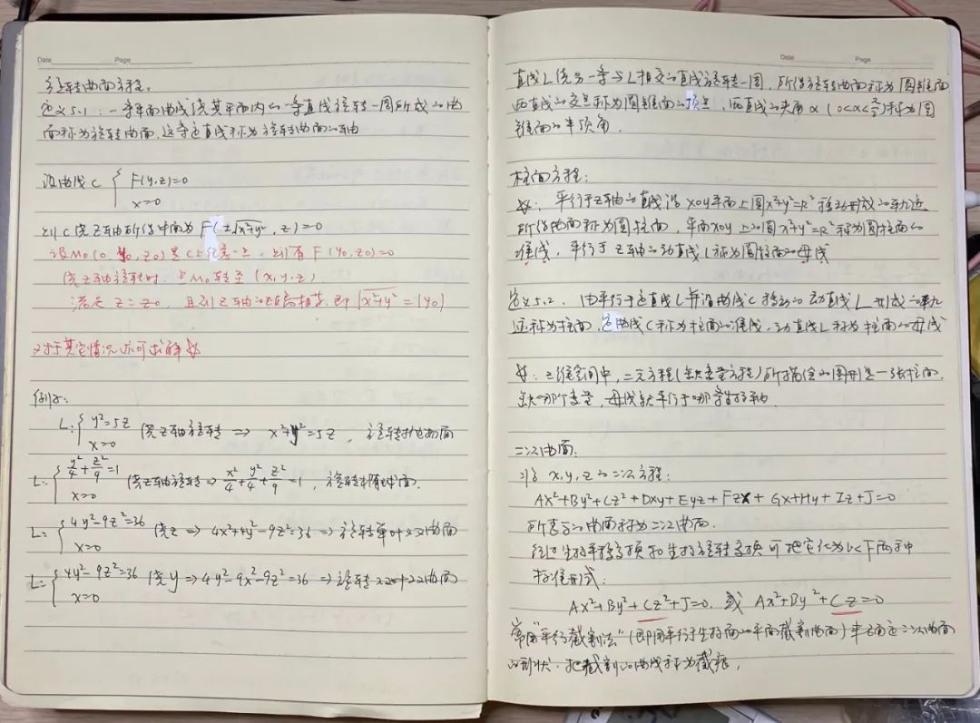 Date Page
旋转曲面方程。
定义5.1：一条平面曲线绕其平面内的一条直线旋转一周所成的曲
面称为旋转曲面,这条定直线称为旋转曲面的轴
设曲线C { F(y,z)=0
x=0
则C绕Z轴所得曲面为 F(±√x²+y², z)=0
设M₀(0, y₀, z₀)是C上任意一点, 则有 F(y₀,z₀)=0
绕z轴旋转时, 点M₀转至 (x,y,z)
满足 z=z₀, 且到z轴的距离相等,即 √x²+y² = |y₀|
对于其它情况亦可求解
例:
L: { y²=5z 绕z轴旋转 ⇒ x²+y²=5z , 旋转抛物面
x=0
L: { y²/4+z²/9=1 绕z轴旋转 ⇒ x²/4+y²/4+z²/9=1 , 旋转椭球面.
x=0
L: { 4y²-9z²=36 绕z ⇒ 4x²+4y²-9z²=36 ⇒ 旋转单叶双曲面
x=0
L: { 4y²-9z²=36 绕y ⇒ 4y²-9x²-9z²=36 ⇒ 旋转双叶双曲面
x=0
Date Page
直线L绕另一条与L相交的直线旋转一周, 所得旋转曲面称为圆锥面
两直线的交点称为圆锥面的顶点, 两直线的夹角α(0<α<π/2)称为圆
锥面的半顶角.
柱面方程:
平行于z轴的直线沿xoy平面上圆x²+y²=R²移动形成的轨迹
所得曲面称为圆柱面, 平面xoy上的圆x²+y²=R²称为圆柱面的
准线, 平行于z轴的动直线L称为圆柱面的母线
定义5.2. 由平行于定直线L并沿曲线C移动的动直线L形成的轨
迹称为柱面,定曲线C称为柱面的准线,动直线L称为柱面的母线
: 三维空间中,二元方程(缺变量方程)所描绘的图形是一张柱面,
缺哪个变量,母线就平行于哪条坐标轴.
二次曲面.
x, y, z的二次方程:
Ax²+By²+Cz²+Dxy+Eyz+Fzx+Gx+Hy+Iz+J=0
所表示的曲面称为二次曲面.
经过坐标平移变换和坐标旋转变换可把它化为以下两种
标准形式:
Ax²+By²+Cz²+J=0. 或 Ax²+By²+Cz=0
常用"平行截割法"(即用平行于坐标面的平面截割曲面)来确定二次曲面
的形状. 把截割的曲线称为截痕.